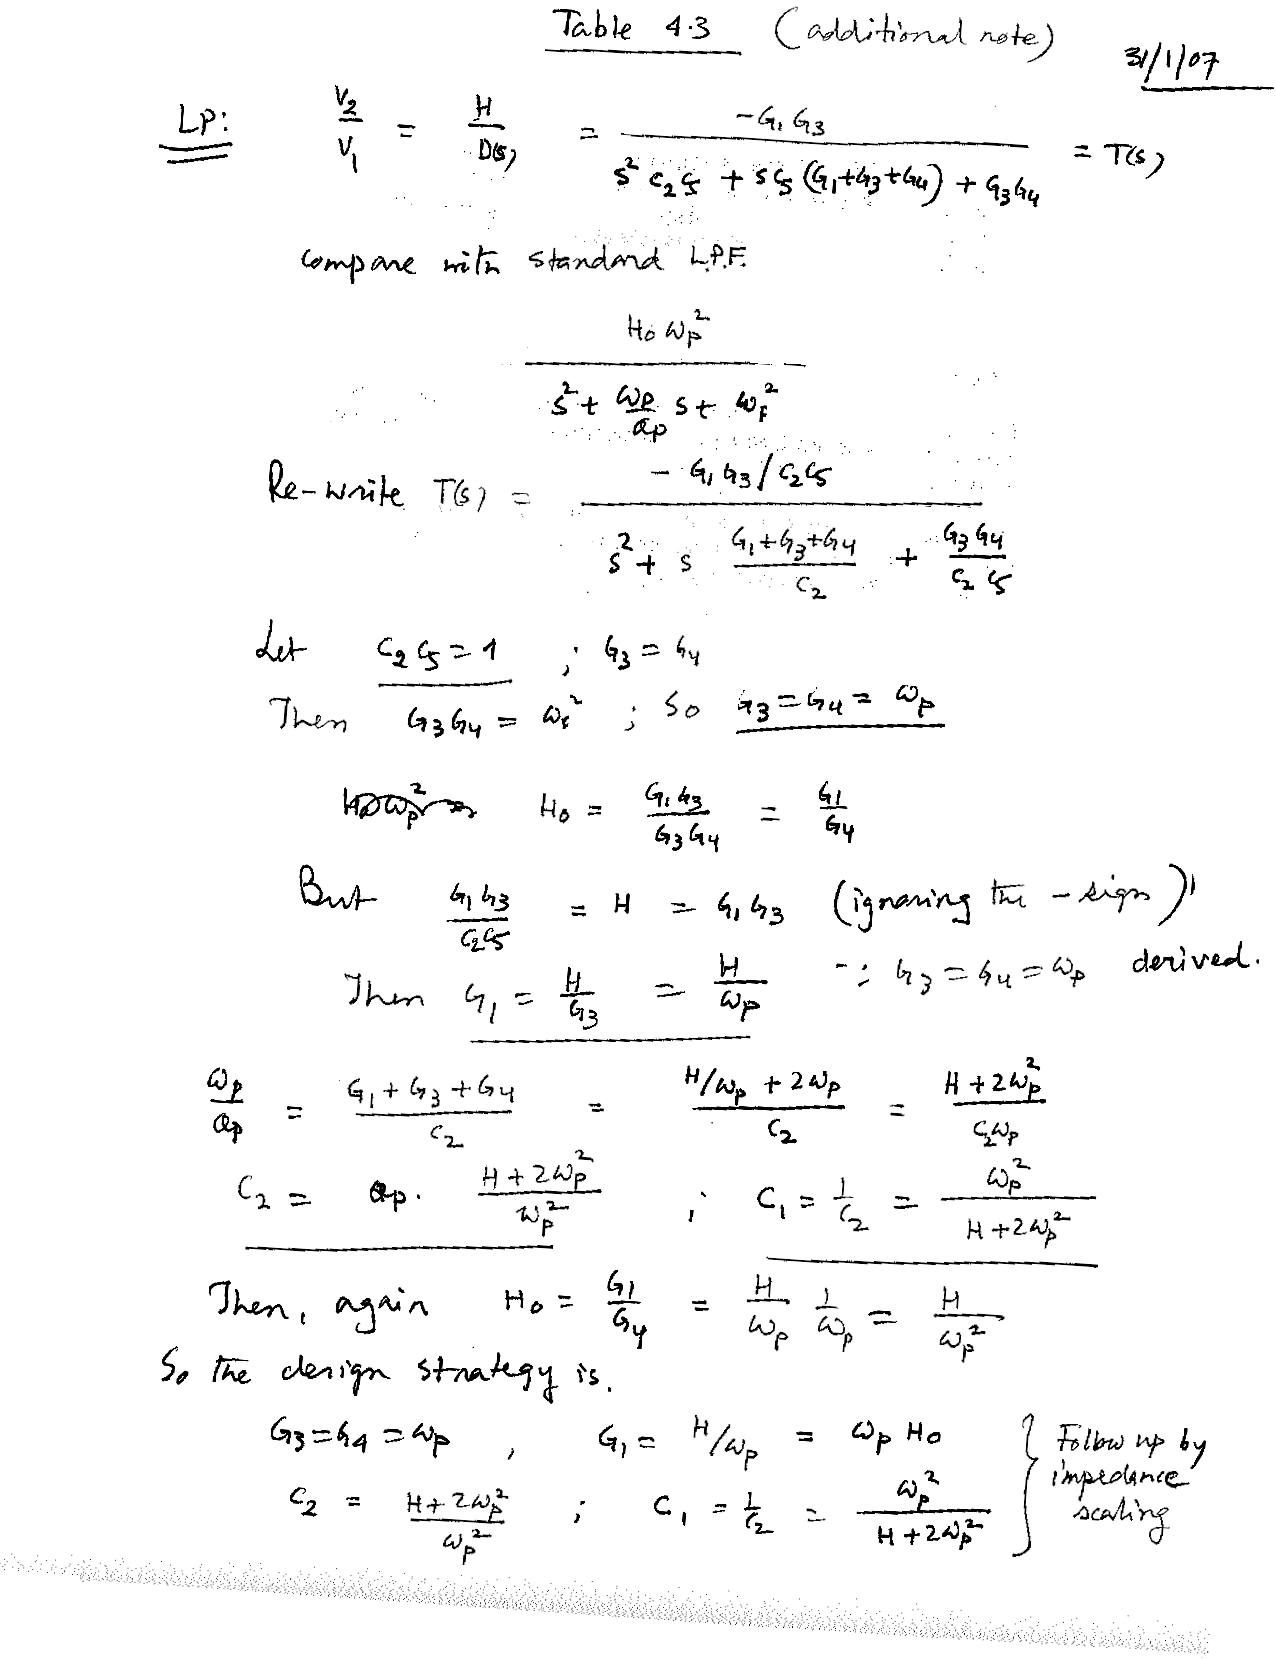 Table 4.3 (additional note)
31/1/07
LP: V₂/V₁ = H/D(s) = -G₁G₃ / (s²C₂C₅ + sC₅(G₁+G₃+G₄) + G₃G₄) = T(s)
compare with standard L.P.F.
H₀ωₚ² / (s² + (ωₚ/Qₚ) s + ωₚ²)
Re-write T(s) = (-G₁G₃/C₂C₅) / (s² + s (G₁+G₃+G₄)/C₂ + G₃G₄/C₂C₅)
Let C₂C₅ = 1 ; G₃ = G₄
Then G₃G₄ = ωₚ² ; So G₃ = G₄ = ωₚ
H₀ωₚ² = H₀ = G₁G₃/G₃G₄ = G₁/G₄
But G₁G₃/C₂C₅ = H = G₁G₃ (ignoring the - sign)
Then G₁ = H/G₃ = H/ωₚ ∵ G₃ = G₄ = ωₚ derived.
ωₚ/Qₚ = (G₁+G₃+G₄)/C₂ = (H/ωₚ + 2ωₚ)/C₂ = (H+2ωₚ²)/C₂ωₚ
C₂ = Qₚ. (H+2ωₚ²)/ωₚ² ; C₁ = 1/C₂ = ωₚ²/(H+2ωₚ²)
Then, again H₀ = G₁/G₄ = H/ωₚ 1/ωₚ = H/ωₚ²
So the design strategy is.
G₃=G₄=ωₚ , G₁ = H/ωₚ = ωₚ H₀
C₂ = (H+2ωₚ²)/ωₚ² ; C₁ = 1/C₂ = ωₚ²/(H+2ωₚ²)
} Follow up by
impedance
scaling